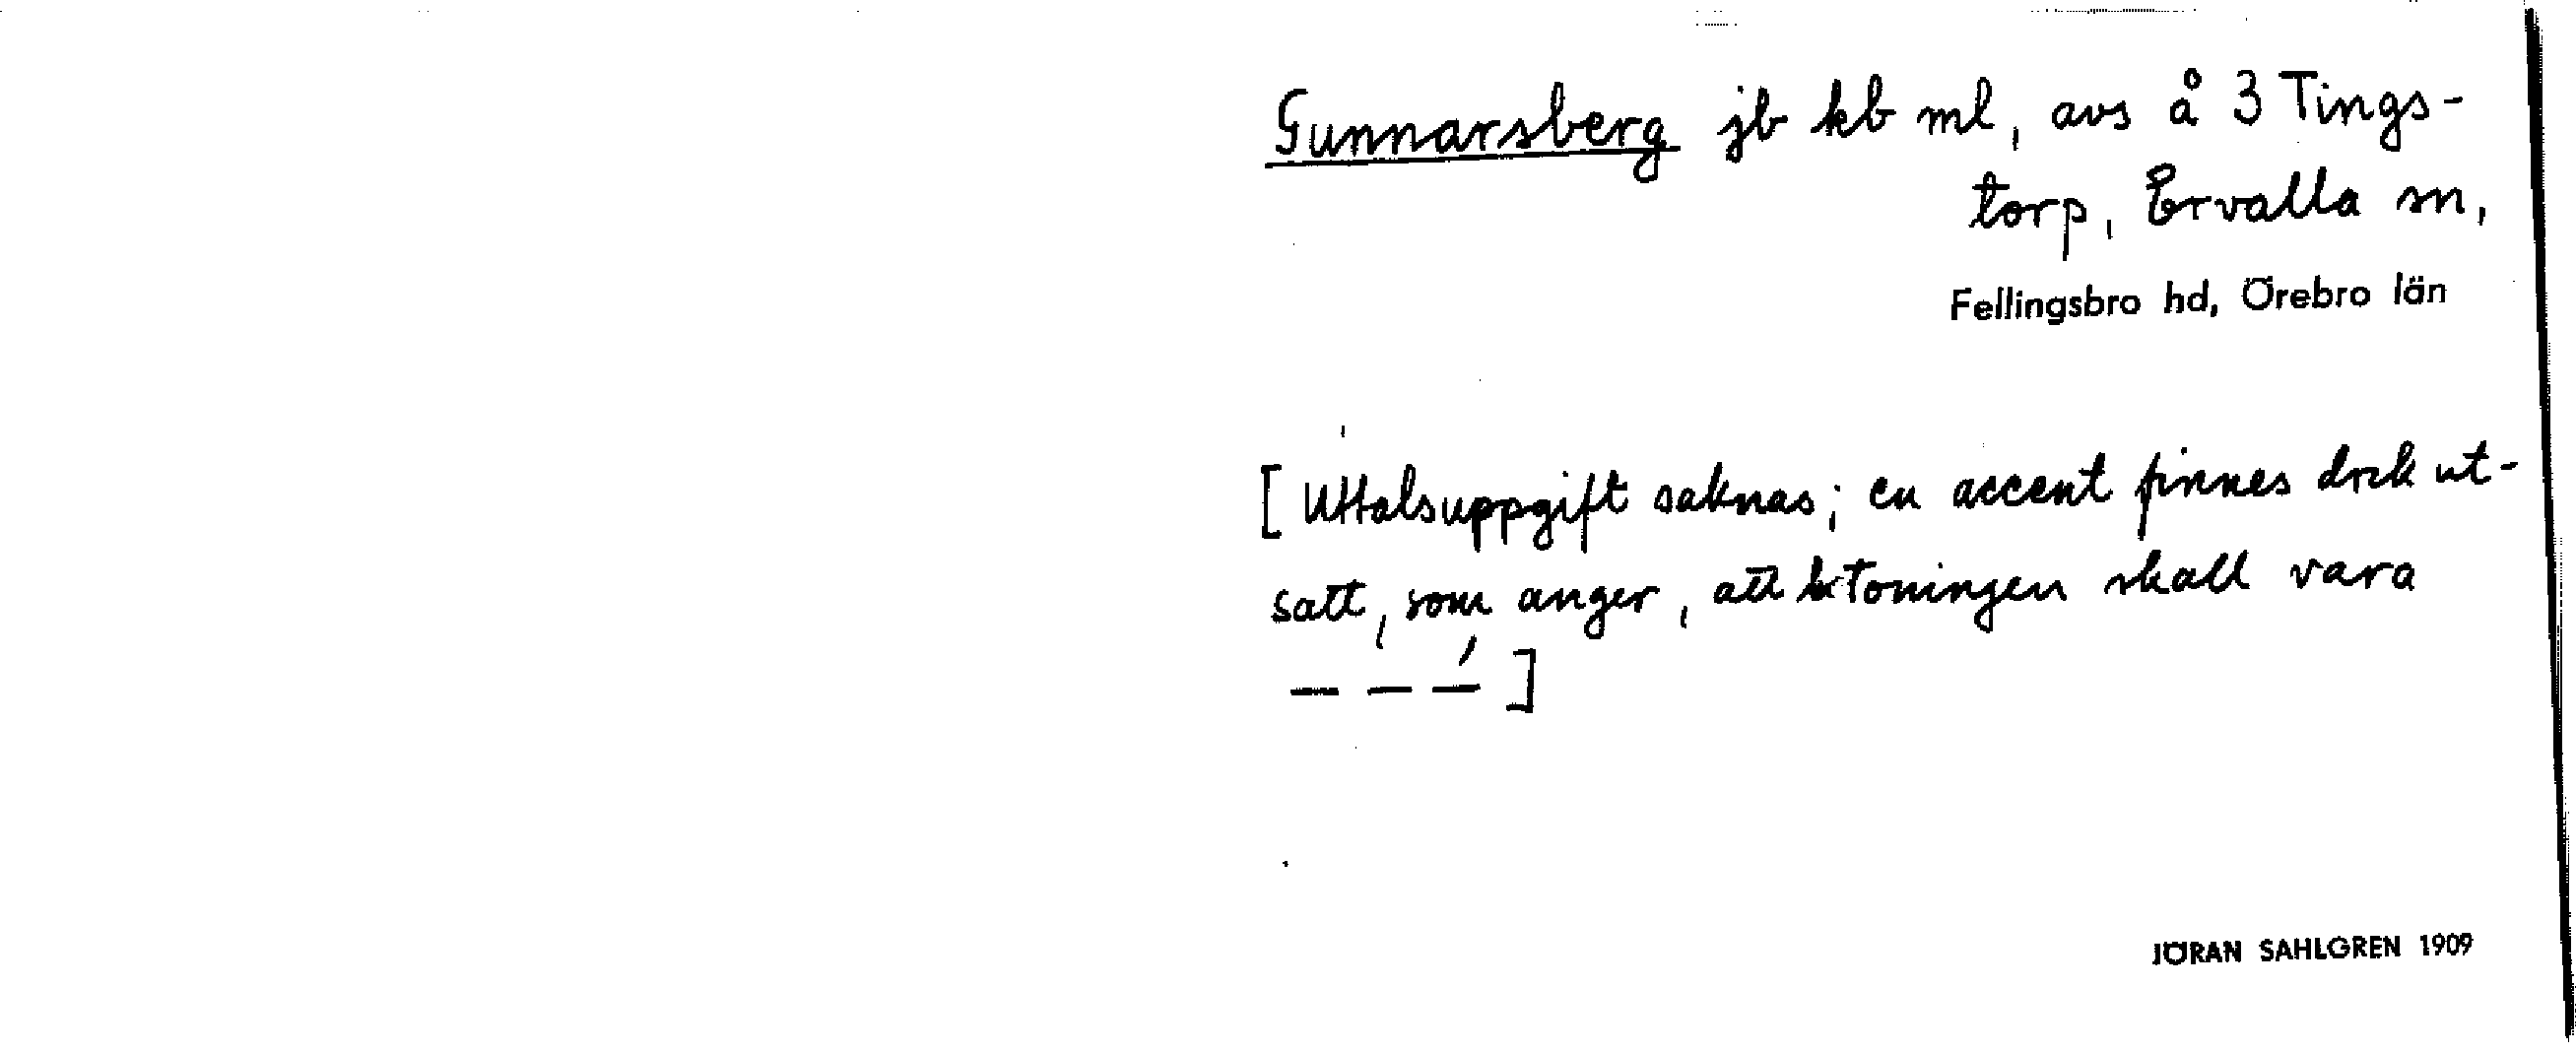 Gunnarsberg jb kb ml, avs å 3 Tings-
torp, Ervalla sn,
Fellingsbro hd, Örebro län
[Uttalsuppgift saknas; en accent finnes dock ut-
satt, som anger, att betoningen skall vara
– – –́ ]
JÖRAN SAHLGREN 1909